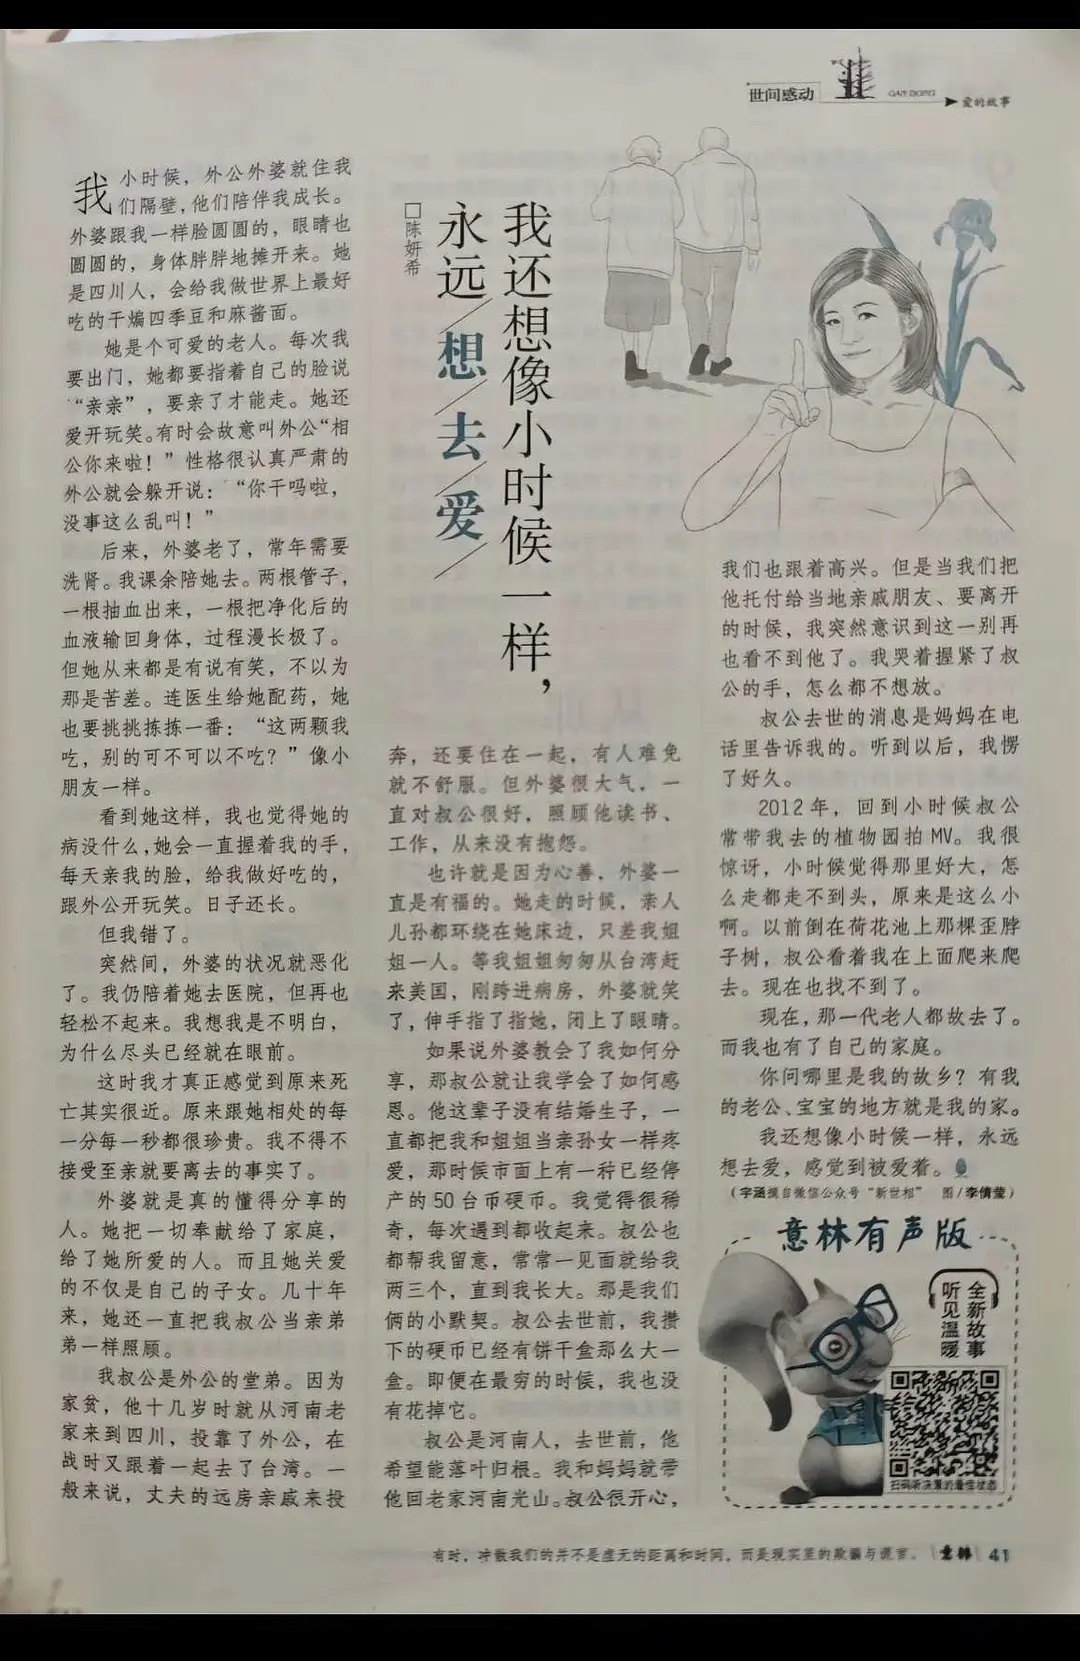 世间感动
GAN DONG
爱的故事
我还想像小时候一样，
永远想去爱
□陈妍希
我小时候，外公外婆就住我
们隔壁，他们陪伴我成长。
外婆跟我一样脸圆圆的，眼睛也
圆圆的，身体胖胖地摊开来。她
是四川人，会给我做世界上最好
吃的干煸四季豆和麻酱面。
她是个可爱的老人。每次我
要出门，她都要指着自己的脸说
“亲亲”，要亲了才能走。她还
爱开玩笑。有时会故意叫外公“相
公你来啦！”性格很认真严肃的
外公就会躲开说：“你干吗啦，
没事这么乱叫！”
后来，外婆老了，常年需要
洗肾。我课余陪她去。两根管子，
一根抽血出来，一根把净化后的
血液输回身体，过程漫长极了。
但她从来都是有说有笑，不以为
那是苦差。连医生给她配药，她
也要挑挑拣拣一番：“这两颗我
吃，别的可不可以不吃？”像小
朋友一样。
看到她这样，我也觉得她的
病没什么，她会一直握着我的手，
每天亲我的脸，给我做好吃的，
跟外公开玩笑。日子还长。
但我错了。
突然间，外婆的状况就恶化
了。我仍陪着她去医院，但再也
轻松不起来。我想我是不明白，
为什么尽头已经就在眼前。
这时我才真正感觉到原来死
亡其实很近。原来跟她相处的每
一分每一秒都很珍贵。我不得不
接受至亲就要离去的事实了。
外婆就是真的懂得分享的
人。她把一切奉献给了家庭，
给了她所爱的人。而且她关爱
的不仅是自己的子女。几十年
来，她还一直把我叔公当亲弟
弟一样照顾。
我叔公是外公的堂弟。因为
家贫，他十几岁时就从河南老
家来到四川，投靠了外公，在
战时又跟着一起去了台湾。一
般来说，丈夫的远房亲戚来投
奔，还要住在一起，有人难免
就不舒服。但外婆很大气，一
直对叔公很好，照顾他读书、
工作，从来没有抱怨。
也许就是因为心善，外婆一
直是有福的。她走的时候，亲人
儿孙都环绕在她床边，只差我姐
姐一人。等我姐姐匆匆从台湾赶
来美国，刚跨进病房，外婆就笑
了，伸手指了指她，闭上了眼睛。
如果说外婆教会了我如何分
享，那叔公就让我学会了如何感
恩。他这辈子没有结婚生子，一
直都把我和姐姐当亲孙女一样疼
爱，那时候市面上有一种已经停
产的50台币硬币。我觉得很稀
奇，每次遇到都收起来。叔公也
都帮我留意，常常一见面就给我
两三个，直到我长大。那是我们
俩的小默契。叔公去世前，我攒
下的硬币已经有饼干盒那么大一
盒。即便在最穷的时候，我也没
有花掉它。
叔公是河南人，去世前，他
希望能落叶归根。我和妈妈就带
他回老家河南光山。叔公很开心，
我们也跟着高兴。但是当我们把
他托付给当地亲戚朋友、要离开
的时候，我突然意识到这一别再
也看不到他了。我哭着握紧了叔
公的手，怎么都不想放。
叔公去世的消息是妈妈在电
话里告诉我的。听到以后，我愣
了好久。
2012年，回到小时候叔公
常带我去的植物园拍MV。我很
惊讶，小时候觉得那里好大，怎
么走都走不到头，原来是这么小
啊。以前倒在荷花池上那棵歪脖
子树，叔公看着我在上面爬来爬
去。现在也找不到了。
现在，那一代老人都故去了。
而我也有了自己的家庭。
你问哪里是我的故乡？有我
的老公、宝宝的地方就是我的家。
我还想像小时候一样，永远
想去爱，感觉到被爱着。
（宇涵摘自微信公众号“新世相” 图/李倩莹）
意林有声版
全新故事
听见温暖
有时，冲散我们的并不是虚无的距离和时间，而是现实里的欺骗与谎言。
意林 41